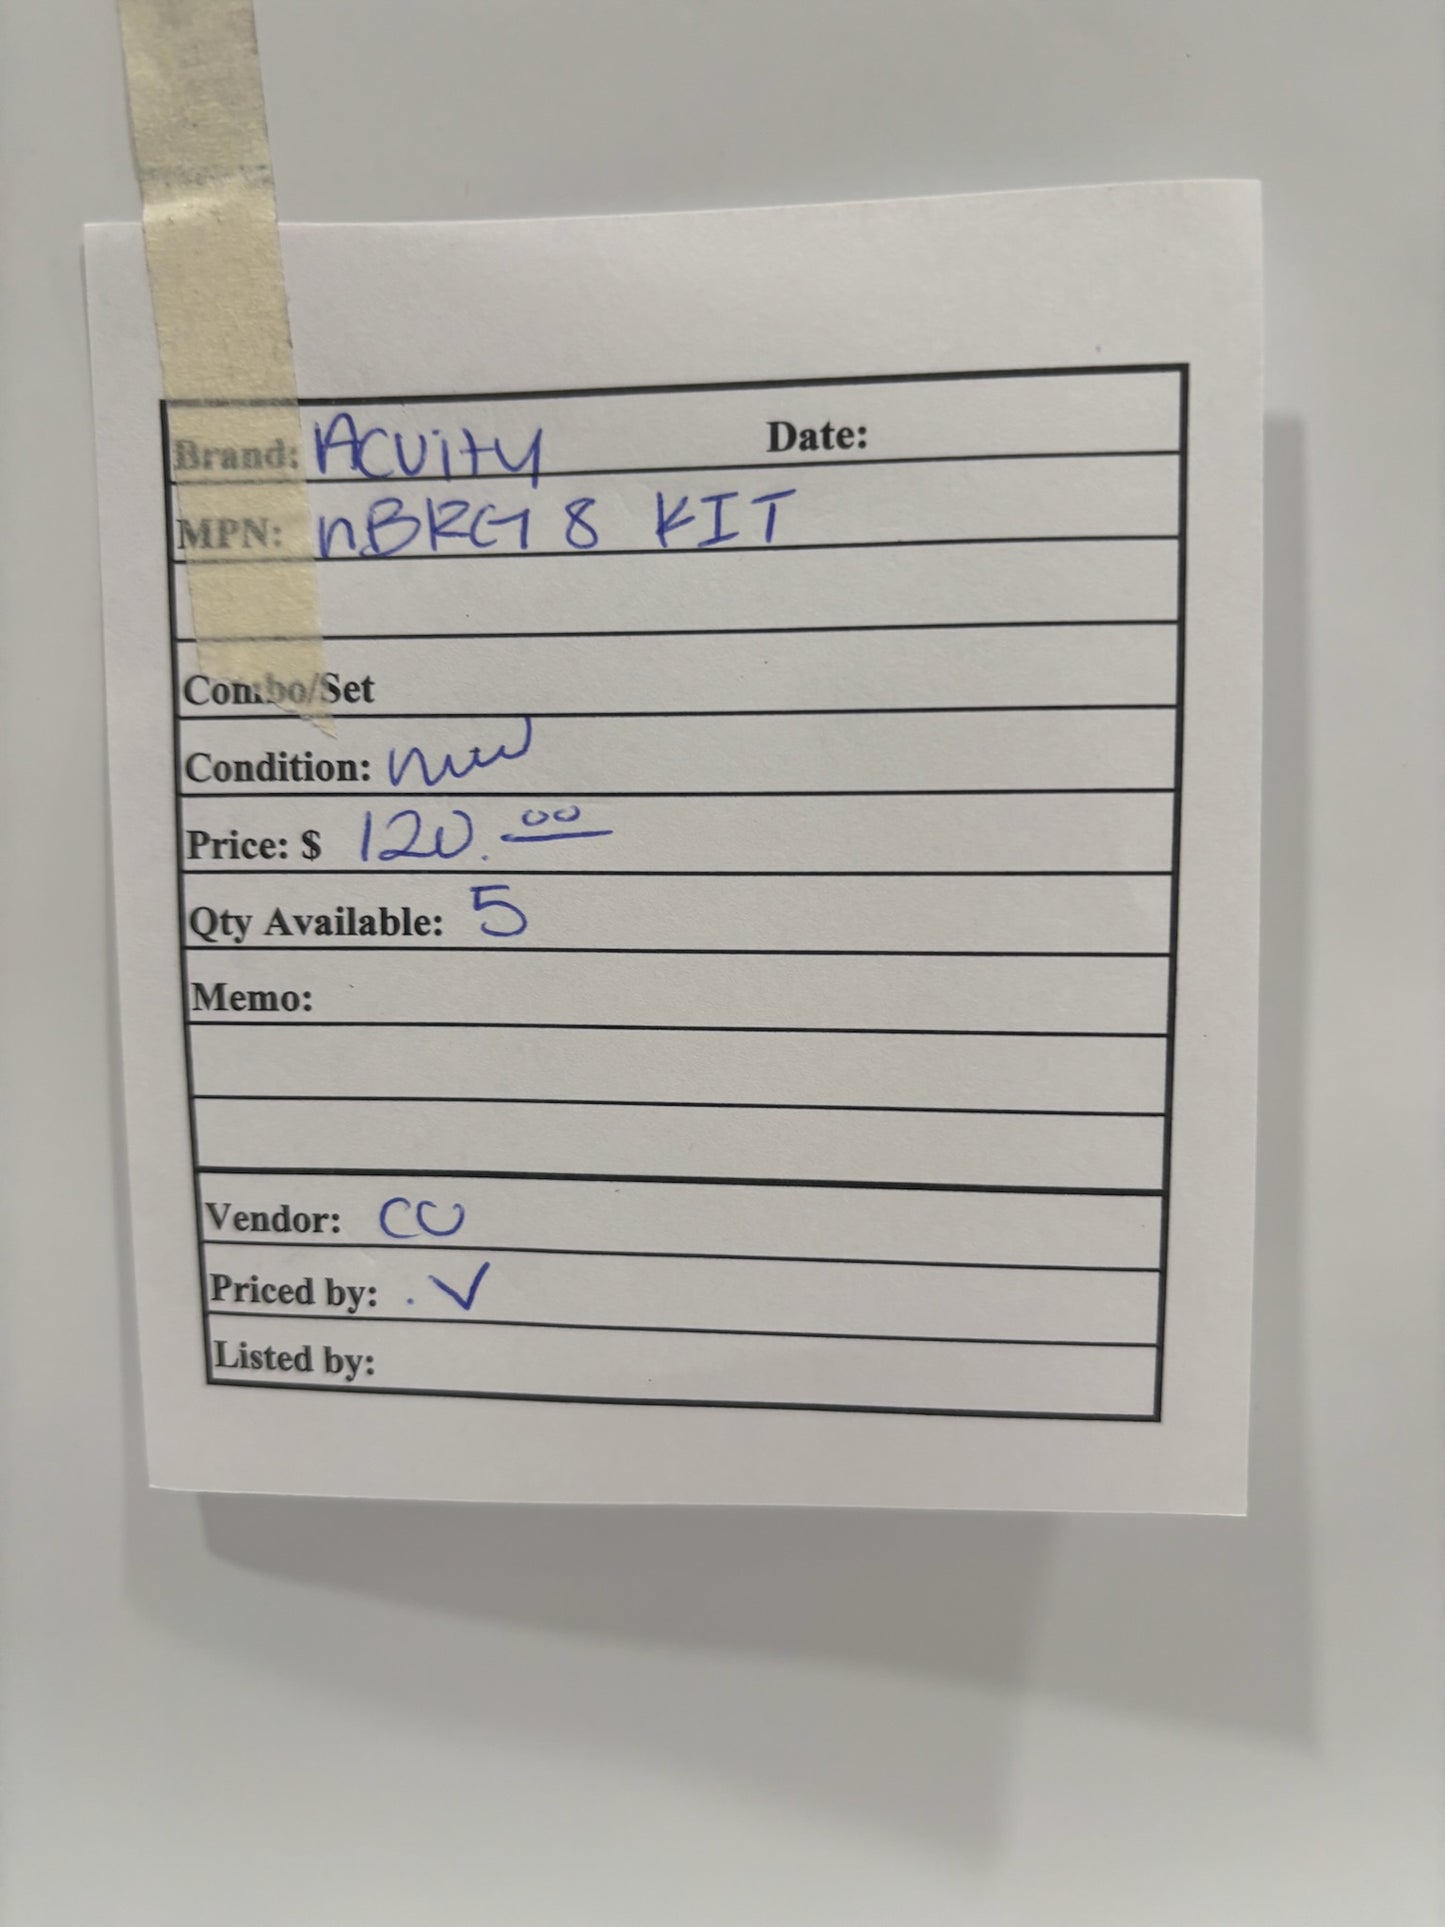 Brand: Acuity Date:
MPN: nBRG 8 KIT
Combo/Set
Condition: new
Price: $ 120.00
Qty Available: 5
Memo:
Vendor: CU
Priced by: . V
Listed by: